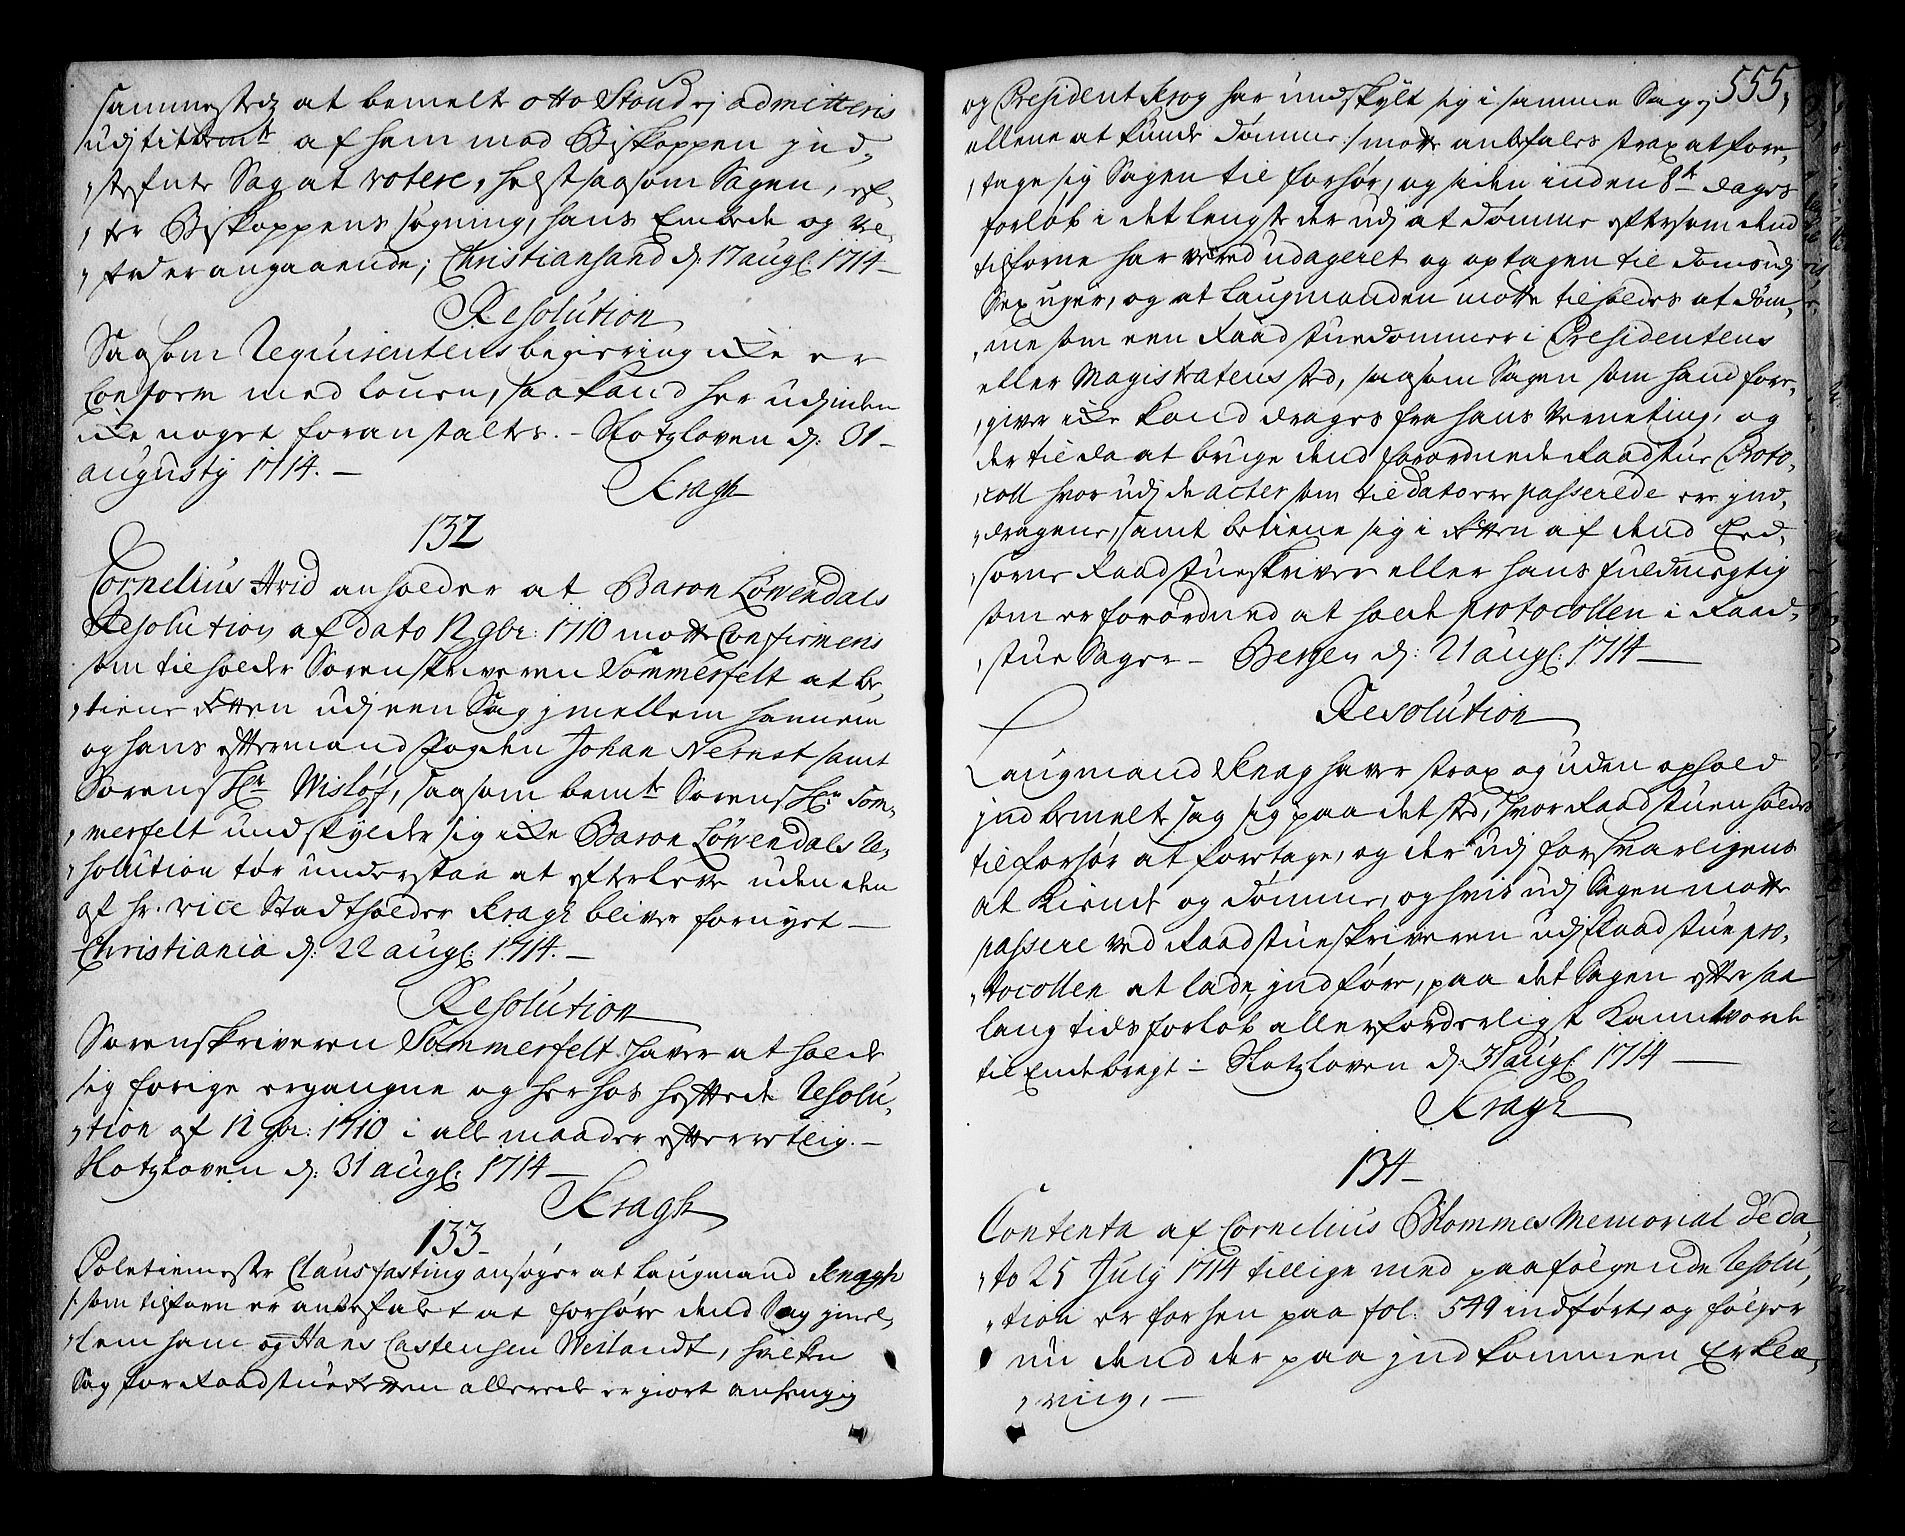 sammesteds at bemelte Otto Stoud ej admitteris
udj tit bemte af ham mod Biskoppen ind¬
stefnte Sag at votere, helst saasom Sagen, ef¬
ter Biskoppens søgning, hans Embede og Vel¬
ferd er angaaende; Christiansand dj 17 augl: 1714
Resolution
Saasom Requirentens begiering icke er
Conform med louen, saa kand her udjnden
icke noget foranstaltes. - Slotzloven d: 31
augustij 1714. -
Kragh
132
Cornelius Hvid anholder at Baron Løwendals
Resolution af dato 12 9br: 1710 motte Confirmeris
som tilholder Sorenskriveren Sommerfelt at be¬
tiene Retten udj een Sag jmellem hannem
og hans eftermand fogden Johan Nernst samt
Sorenskr Wisløf, saasom bemte Sorenskr: Som¬
merfelt undskylder sig icke Baron Løwendals Re¬
solution tør understaae at efterleve uden den
af hr. vice Stadtholder Kragh bliver fornyet
Christiania d: 22 augl: 1714. -
Resolution
Sorenskriveren Sommerfelt haver at holde
sig forige ergangne og herhos heftede Resolu¬
tion af 12 9br: 1710 i alle maader efterretlig. -
Slotzloven d: 31 augl: 1714
Kragh
133
Poletiemester Claus fasting ansøger at Laugmand Knagh
/: som tilforn er anbefalet at forhøre dend Sag jmel¬
lem ham og Hans Castensen Weilandt, hvilken
Sag for Raadstueretten allerede er giort anhengig
555
og President Krog har undskylt sig i samme Sag ej
allene at kunde dømme :/ motte anbefales strax at fore¬
tage sig Sagen til forhør, og siden inden 8te dages
forløb i det lengste der udj at dømme eftersom dend
tilforne har vered udageret og optagen til doms udj
Sex uger, og at Laugmanden motte tilholdes at døm¬
me som een Raadstuedommer i Presidentens
eller Magistratens sted, saasom Sagen som hand fore¬
giver icke kand drages fra hans Verneting, og
der til da at bruge dend forordnede Raadstue Proto¬
coll hvor udj de acter som til dato ere passerede ere ind¬
dragene, samt betiene sig i Retten af dend Eed¬
sorne Raadstueskriver eller hans fuldmegtig
som er forordned at holde protocollen i Raad¬
stue Sager - Bergen d: 21 augl: 1714
Resolution
Laugmand Knag haver strax og uden ophold
jndbemelte sag sig paa det sted, hvor Raadstuen holdes
til forhør at foretage, og der udj forsvarligens
at kiende og dømme, og hvis udj Sagen motte
passere ved Raadstueskriveren udj Raadstue pro¬
tocollen at lade jndføre, paa det Sagen efter saa
lang tids forløb allerforderligst kand vorde
til Ende bragt - Slotzloven d: 31 augl: 1714
Kragh
134
Contenta af Cornelius Blommes Memorial de da¬
to 25 July 1714 tillige med paafølgende Resolu¬
tion er forhen paa fol: 549 indført, og følger
nu dend der paa jndkommen Erklæ¬
ring. -